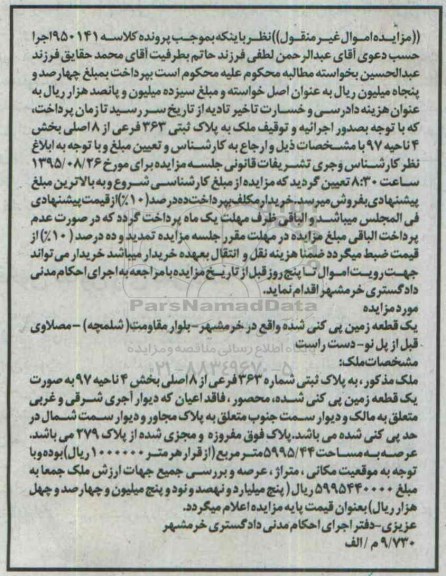 ((مزایده اموال غیر منقول)) نظر باینکه بموجب پرونده کلاسه ۹۵۰۱۴۱ اجرا
حسب دعوی آقای عبدالرحمن لطفی فرزند حاتم بطرفیت آقای محمد حقایق فرزند
عبدالحسین بخواسته مطالبه محکوم علیه محکوم است بپرداخت بمبلغ چهارصد و
پنجاه میلیون ریال به عنوان اصل خواسته و مبلغ سیزده میلیون و پانصد هزار ریال به
عنوان هزینه دادرسی و خسارت تاخیر تادیه از تاریخ سر رسید تا زمان پرداخت،
که با توجه بصدور اجرائیه و توقیف ملک به پلاک ثبتی ۳۶۳ فرعی از ۸ اصلی بخش
۴ ناحیه ۹۷ با مشخصات ذیل و ارجاع به کارشناس و تعیین مبلغ و با توجه به ابلاغ
نظر کارشناس وجری تشریفات قانونی جلسه مزایده برای مورخ ۱۳۹۵/۰۸/۲۶
ساعت ۸:۳۰ تعیین گردید که مزایده از مبلغ کارشناسی شروع و به بالاترین مبلغ
پیشنهادی بفروش میرسد. خریدار مکلف بپرداخت ده درصد (۱۰٪) از قیمت پیشنهادی
فی المجلس میباشد و الباقی ظرف مهلت یک ماه پرداخت گردد که در صورت عدم
پرداخت الباقی مبلغ مزایده در مهلت مقرر جلسه مزایده تمدید و ده درصد (۱۰٪) از
قیمت ضبط میگردد ضمنا هزینه نقل و انتقال بعهده خریدار میباشد خریدار می تواند
جهت رویت اموال تا پنج روز قبل از تاریخ مزایده با مراجعه به اجرای احکام مدنی
دادگستری خرمشهر اقدام نماید.
ParsNamadData
مورد مزایده
یک قطعه زمین پی کنی شده واقع در خرمشهر-بلوار مقاومت (شلمچه) -مصلاوی
قبل از پل نو- دست راست
پایگاه اطلاع رسانی مناقصه و مزایده
مشخصات ملک:
۰۲۱-۸۸۳۴۹۶۷۰-۵
ملک مذکور، به پلاک ثبتی شماره ۳۶۳ فرعی از ۸ اصلی بخش ۴ ناحیه ۹۷ به صورت
یک قطعه زمین پی کنی شده، محصور، فاقد اعیان که دیوار آجری شرقی و غربی
متعلق به مالک و دیوار سمت جنوب متعلق به پلاک مجاور و دیوار سمت شمال در
حد پی کنی شده می باشد. پلاک فوق مفروزه و مجزی شده از پلاک ۲۷۹ می باشد.
عرصه به مساحت ۵۹۹۵/۴۴ متر مربع (از قرار هر متر ۱۰۰۰۰۰۰ ریال) بوده و با
توجه به موقعیت مکانی، متراژ، عرصه و بررسی جمیع جهات ارزش ملک جمعا به
مبلغ ۵۹۹۵۴۴۰۰۰۰ ریال (پنج میلیارد و نهصد و نود و پنج میلیون و چهارصد و چهل
هزار ریال) بعنوان قیمت پایه مزایده اعلام میگردد.
عزیزی-دفتر اجرای احکام مدنی دادگستری خرمشهر
۹/۷۳۰ م / الف